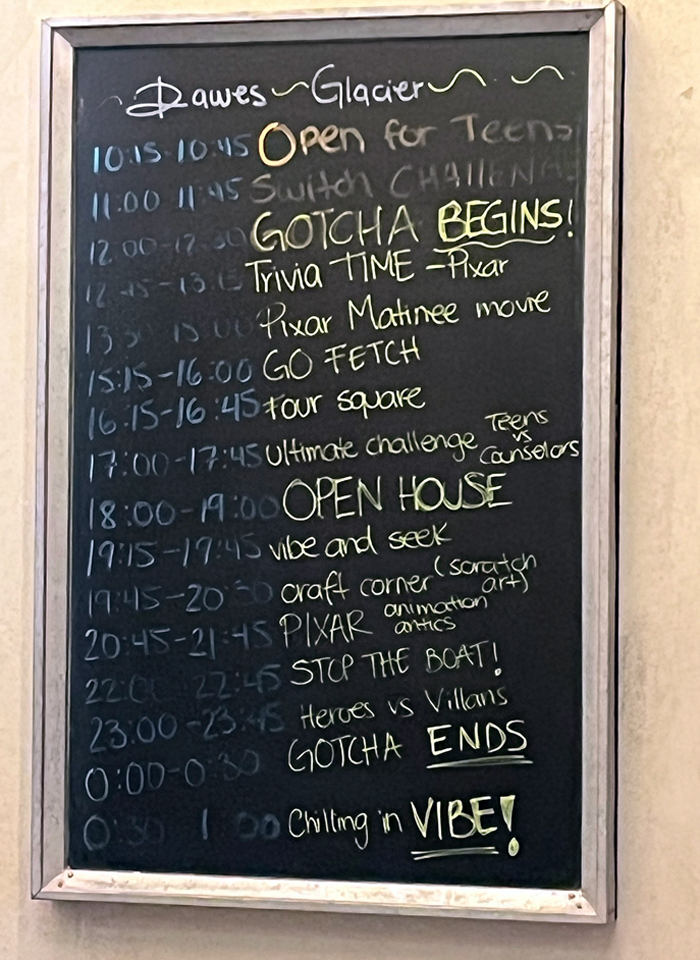 Dawes ~ Glacier ~ ~
10:15-10:45 Open for Teens
11:00 11:45 Switch CHAllENGE
12:00-12:30 GOTCHA BEGINS!
12:45-13:15 Trivia TIME - Pixar
13:30 15:00 Pixar Matinee movie
15:15-16:00 GO FETCH
16:15-16:45 Four square
17:00-17:45 Ultimate challenge Teens vs Counselors
18:00-19:00 OPEN HOUSE
19:15-19:45 vibe and seek
19:45-20:30 craft corner (scratch art)
20:45-21:45 PIXAR animation antics
22:00 22:45 STOP THE BOAT!
23:00-23:45 Heroes vs Villans
0:00-0:30 GOTCHA ENDS
0:30 1:00 Chilling in VIBE!